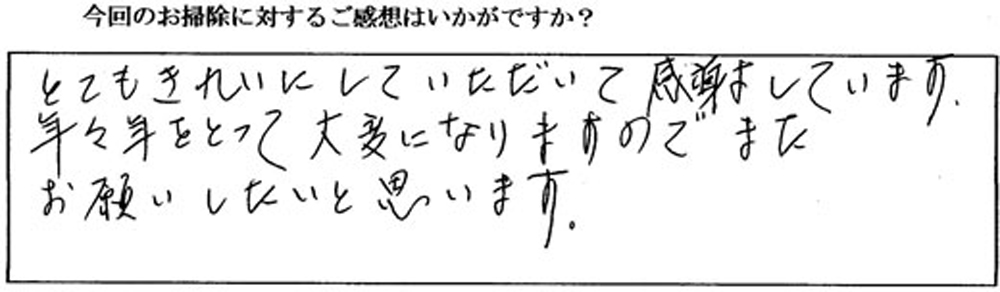 今回のお掃除に対するご感想はいかがですか？
とてもきれいにしていただいて感謝ましています.
年々年をとって大変になりますのでまた
お願いしたいと思います。